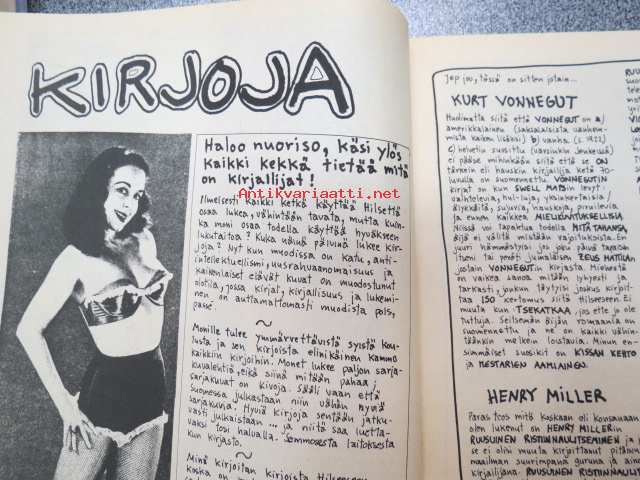 KIRJOJA
Haloo nuoriso, käsi ylös
kaikki kekkä tietää mitä
on kirjallijat!
Antikvariaatti.net
Ilmeisesti kaikki ketkä käyttää Hilsettä
osaa lukea, vähintään tavata, mutta kuin-
ka moni osaa todella käyttää hyväkseen
lukutaitoa? Kuka näinä päivinä lukee kir-
joja? Nyt kun muodissa on katu, anti-
intellektuellismi, uusrahvaanomaisuus ja
kaikenlaiset elävät kuvat on muodostunut
olotila, jossa kirjat, kirjallisuus ja lukemi-
nen on auttamattomasti muodista pois,
passé.
~
Monille tulee ymmärrettävistä syistä kou-
lusta ja sen kirjoista elinikäinen kammo
kaikkiin kirjoihin. Monet lukee paljon sarja-
kuvalehtiä, eikä siinä mitään pahaa,
sarjakuvat on kivoja. Sääli vaan että
Suomessa julkastaan niin vähän hyviä
sarjakuvia. Hyviä kirjoja sentään jatku-
vasti julkaistaan ... ja niitä saa luetta-
vaksi tosi halualla. Semmosesta laitoksesta
kun kirjasto.
~
Minä kirjoitan kirjoista Hilseeseen
koska on
Jep jou, tässä on sitten jotain...
KURT VONNEGUT
Huolimatta siitä että VONNEGUT on a)
amerikkalainen (saksalaisista vanhem-
mista kaiken lisäksi) b) vanha (s. 1922)
c) helvetin suosittu (varsinkin Jenkeissä)
ei pääse mihinkään siitä että se ON
tärkein eli hauskin kirjailija ketä 30-
vuolla on suomennettu. VONNEGUTIN
kirjat on kun SWELL MAPSin levyt -
vaihtelevia, hulluja, yksinkertaisia /
älykkäitä, sujuvia, hauskoja, pruilevia
ja ennen kaikkea MIELIKUVITUKSELLISIA.
Niissä voi tapahtua todella MITÄ TAHANSA,
äijä ei välitä mistään rajoituksista. En
juuri hämmästyisi jos joku päivä tapaisin
itseni tai peräti jumalaisen ZEUS MATTILAN
jostain VONNEGUTin kirjasta. Miehestä
on vaikea sanoa mitään lyhyesti ja
tarkasti, joskun täytyisi joskus kirjoit-
taa 150 kertomus siitä Hilseeseen. Ei
muuta kun TSEKATKAA, jos ette jo ole
tuttuja. Seitsemän äijän romaania on
suomennettu ja ne on kaikki vähin-
täänkin melkein loistavia. Minun en-
simmäiset suosikit on KISSAN KEHTO
ja MESTARIEN AAMIAINEN.
HENRY MILLER
Paras teos mitä koskaan oli kousanaan
olen lukenut on HENRY MILLERin
RUUSUINEN RISTIINNAULITSEMINEN ja
se ei olisi muuta kirjoittanut pitäisin
maailman suurimpana guruna ja aino
kirjailijana. RUUSUINEN RISTIINNAULITS